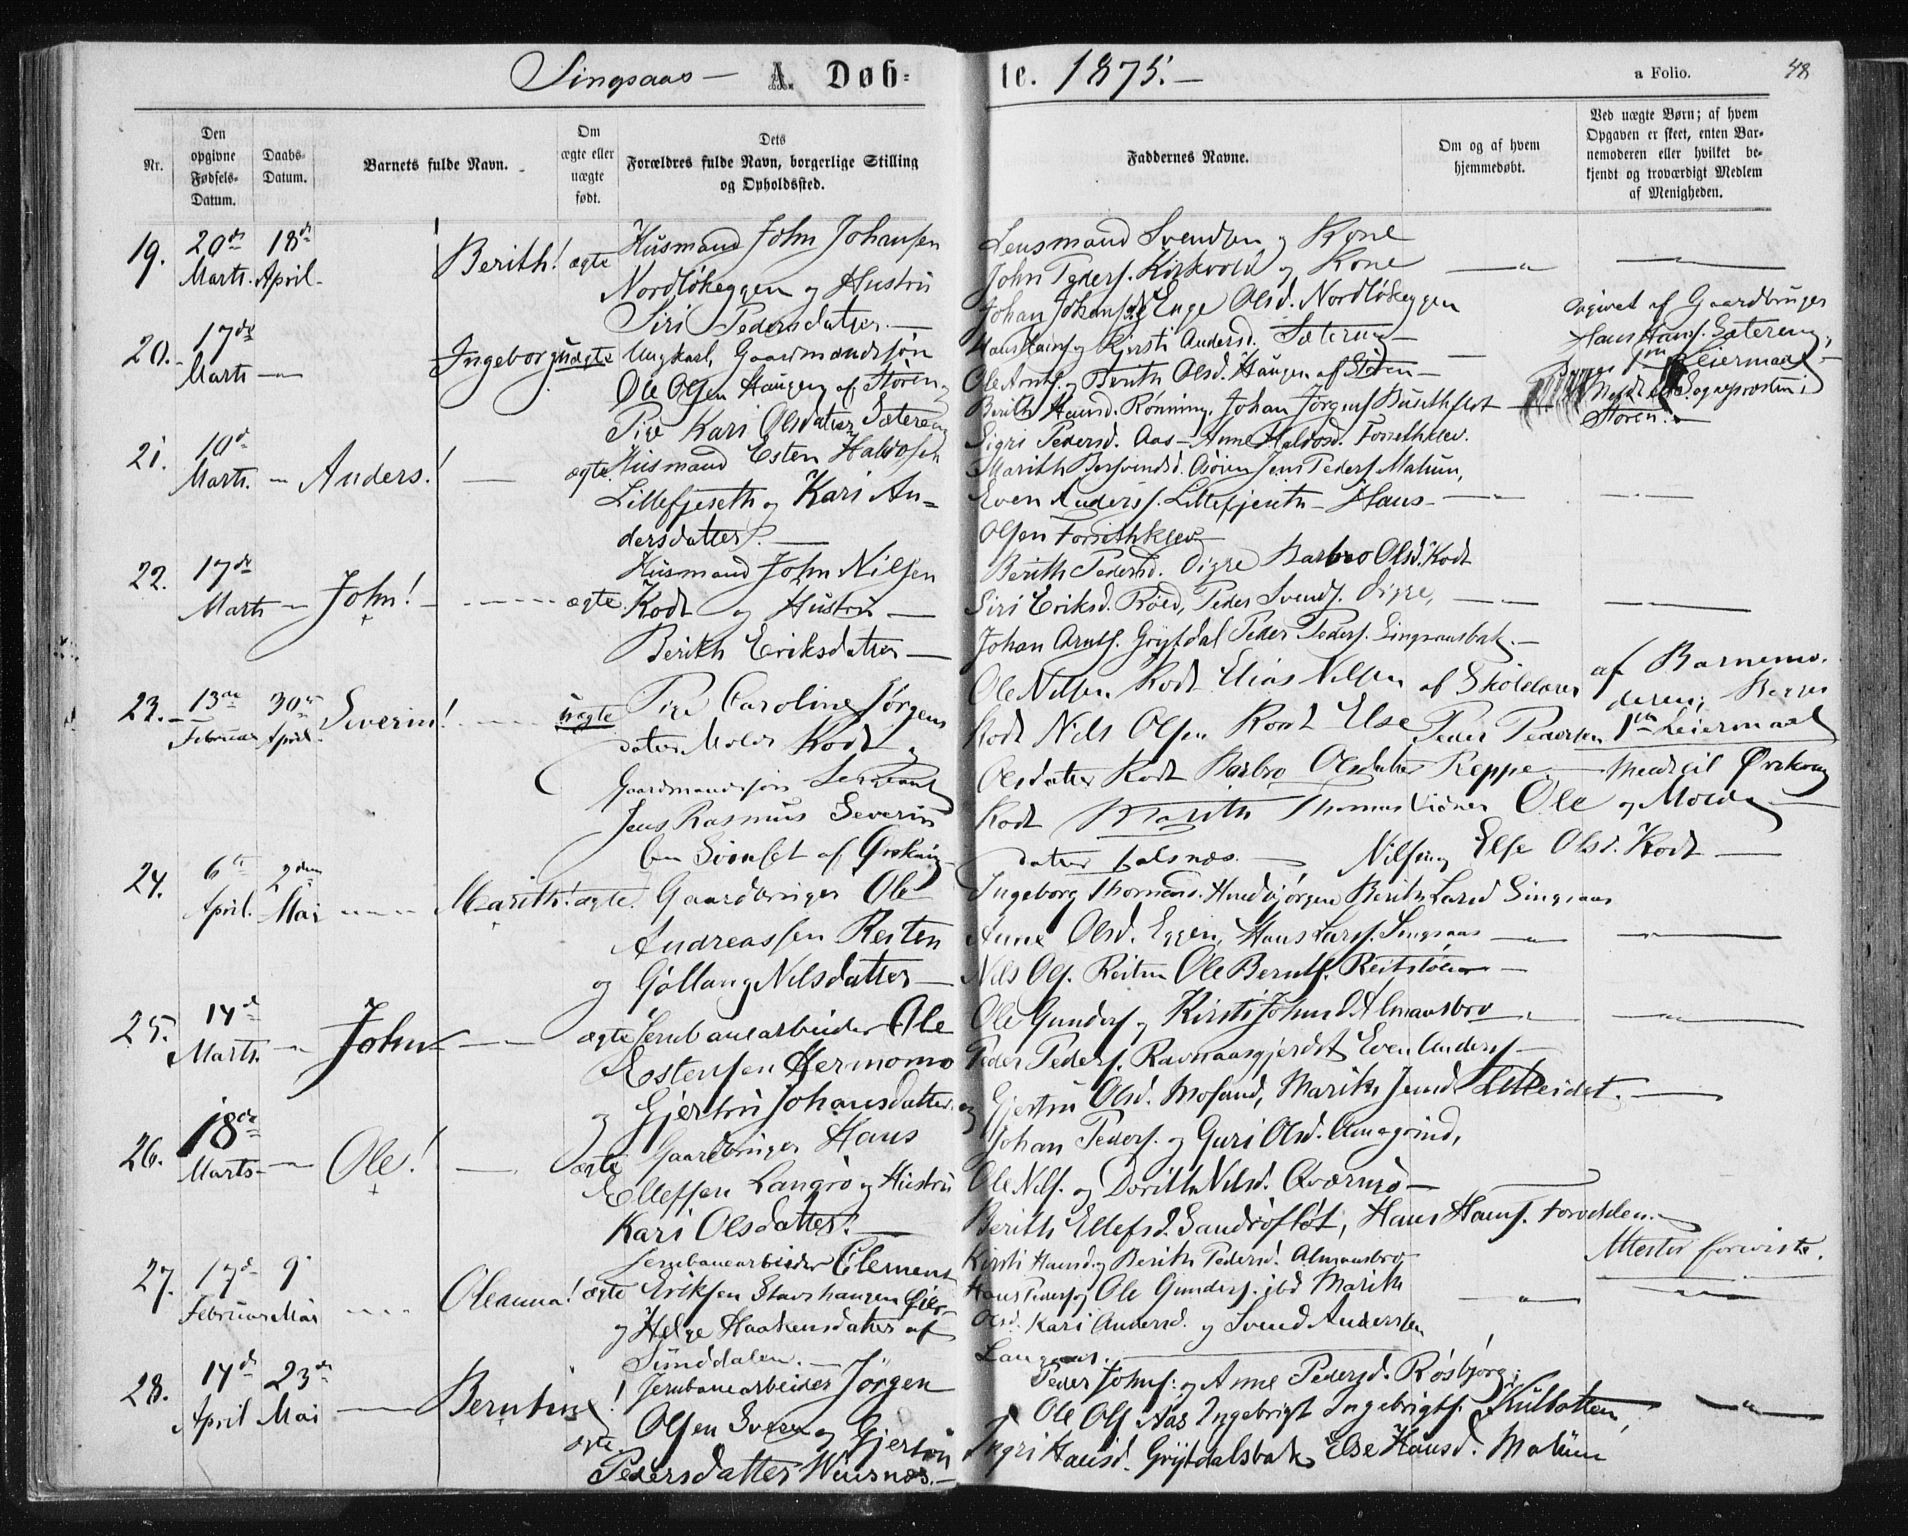 Singsaas — A. Døb=
te. 1875. —
a Folio. 48
Nr.
Den opgivne Fødsels-Datum.
Daabs-Datum.
Barnets fulde Navn.
Om ægte eller uægte født.
Dets Forældres fulde Navn, borgerlige Stilling og Opholdssted.
Faddernes Navne.
Om og af hvem hjemmedøbt.
Ved uægte Børn; af hvem Opgaven er skeet, enten Barnemoderen eller hvilket bekjendt og troværdigt Medlem af Menigheden.
19. 20de Marts. 18de April. Berith! ægte
Husmand John Johansen
Nordløkeggen og Hustru
Siri Pedersdatter. —
Lensmand Svendsen og Kone
John Peders. Kirkvold og Kone
Johan Johans. og Enge Olsd. Nordløkeggen
20. 17de Marts — Ingeborg uægte
Ungkarl, Gaardmandssøn
Ole Olsen Haugen af Støren og
Pige Kari Olsdatter Sæteren
Hans Hans. og Kjersti Andersd. Sæteren —
Ole Arnts. og Berith Olsd. Haugen af Støren —
Berith Hansd. Rønning. Johan Jørgens. Busethflot
Angivet af Gaardbruger
Hans Hans. Sætereng,
Begges 1ste Leiermaal
Sognepræsten i
Støren. —
21. 10de Marts. — Anders! — ægte
Husmand Esten Haldosen
Lillefjeseth og Kari An=
dersdatter. —
Sigri Pedersd. Aas — Anne Haldosd. Forsethklev.
Marith Bersvendsd. Jens Peders. Matum,
Even Anders. Lillefjeseth — Hans
Olsen Forsethklev
22. 17de Marts — John! — ægte
Husmand John Nilsen
Kodt og Hustru —
Berith Eriksdatter —
Berith Pedersd. Digre Barbro Olsd. Kodt
Siri Eriksd. Røed, Peder Svends. Digre,
Johan Arnts. Grytdal Peder Peders. Singsaasbak. —
23. 13de Februar 30te April. Severin! uægte
Pige Caroline Jørgens
datter Molde Kodt og
Gaardmandssøn Sergeant
Jens Rasmus Severin
af Ørskoug
Ole Nilsen Kodt Elias Nilsen af Skoldaren
Kodt Nils Olsen Kodt Else Peder Pedersen
Olsdatter Kodt Barbro Olsdatter Reppe. —
Kodt Marith Thomas Ole
datter Balsnæs. — Nilsen og Else Olsd. Kodt —
af Barnemo.
deren; Begges
1ste Leiermaal
Meldt til Ørskoug
og Molde —
24. 6te April. 2den Mai Marith! ægte.
Gaardbruger Ole
Andreassen Reiten
og Gollaug Nilsdatter —
Ingeborg Thomasd. Berith Larsd Singsaas
Anne Olsd. Eggen, Hans Lars. Singsaas
Nils Ols. Reiten Ole Bernts. Reitstøen —
25. 14de Marts. — John — ægte
Jernbanearbeider Ole
Estensen Hermomo
og Gjertru Johansdatter
Ole Gunders. og Kirsti Johnsd Almaasbro
Peder Peders. Ravnaasgjerdet Even Anders. —
Gjertru Olsd. Mosand, Marith Jensd.
26. 18de Marts — Ole! — ægte
Gaardbruger Hans
Ellefsen Langrø og Hustru
Kari Olsdatter! —
Johan Peders. og Guri Olsd.
Ole Nils. og Dorith Nilsd. Qværnø —
Berith Ellefsd. Sandrøflot, Hans Hans. —
27. 17de Februar 9 Mai Oleanna! ægte
Jernbanearbeider Clement
Eriksen Stavshaugen
og Helge Haakensdatter af
Sunddalen. —
Kirsti Hansd. og Berith Pedersd. Almaasbro
Hans Peders. og Ole Gunders. ibd Marith
Olsd. Kari Andersd. og Svend Andersen
Attester forviste.
28. 14de April 23de Mai Berntine! ægte
Jernbanearbeider Jørgen
Olsen Sveen og Gjertru
Pedersdatter Winsnæs. —
Peder Johns. og Anne Pedersd. Røsbjørg;
Ole Ols Aas Ingebrigt Ingebrigts. Kulbotten,
Ingri Hansd. Grytdalsbak Else Hansd. Matum